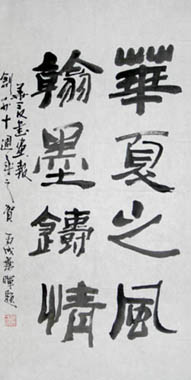 華夏之風
翰墨鑄情
書畫報
創刊十週年之賀 丙戌